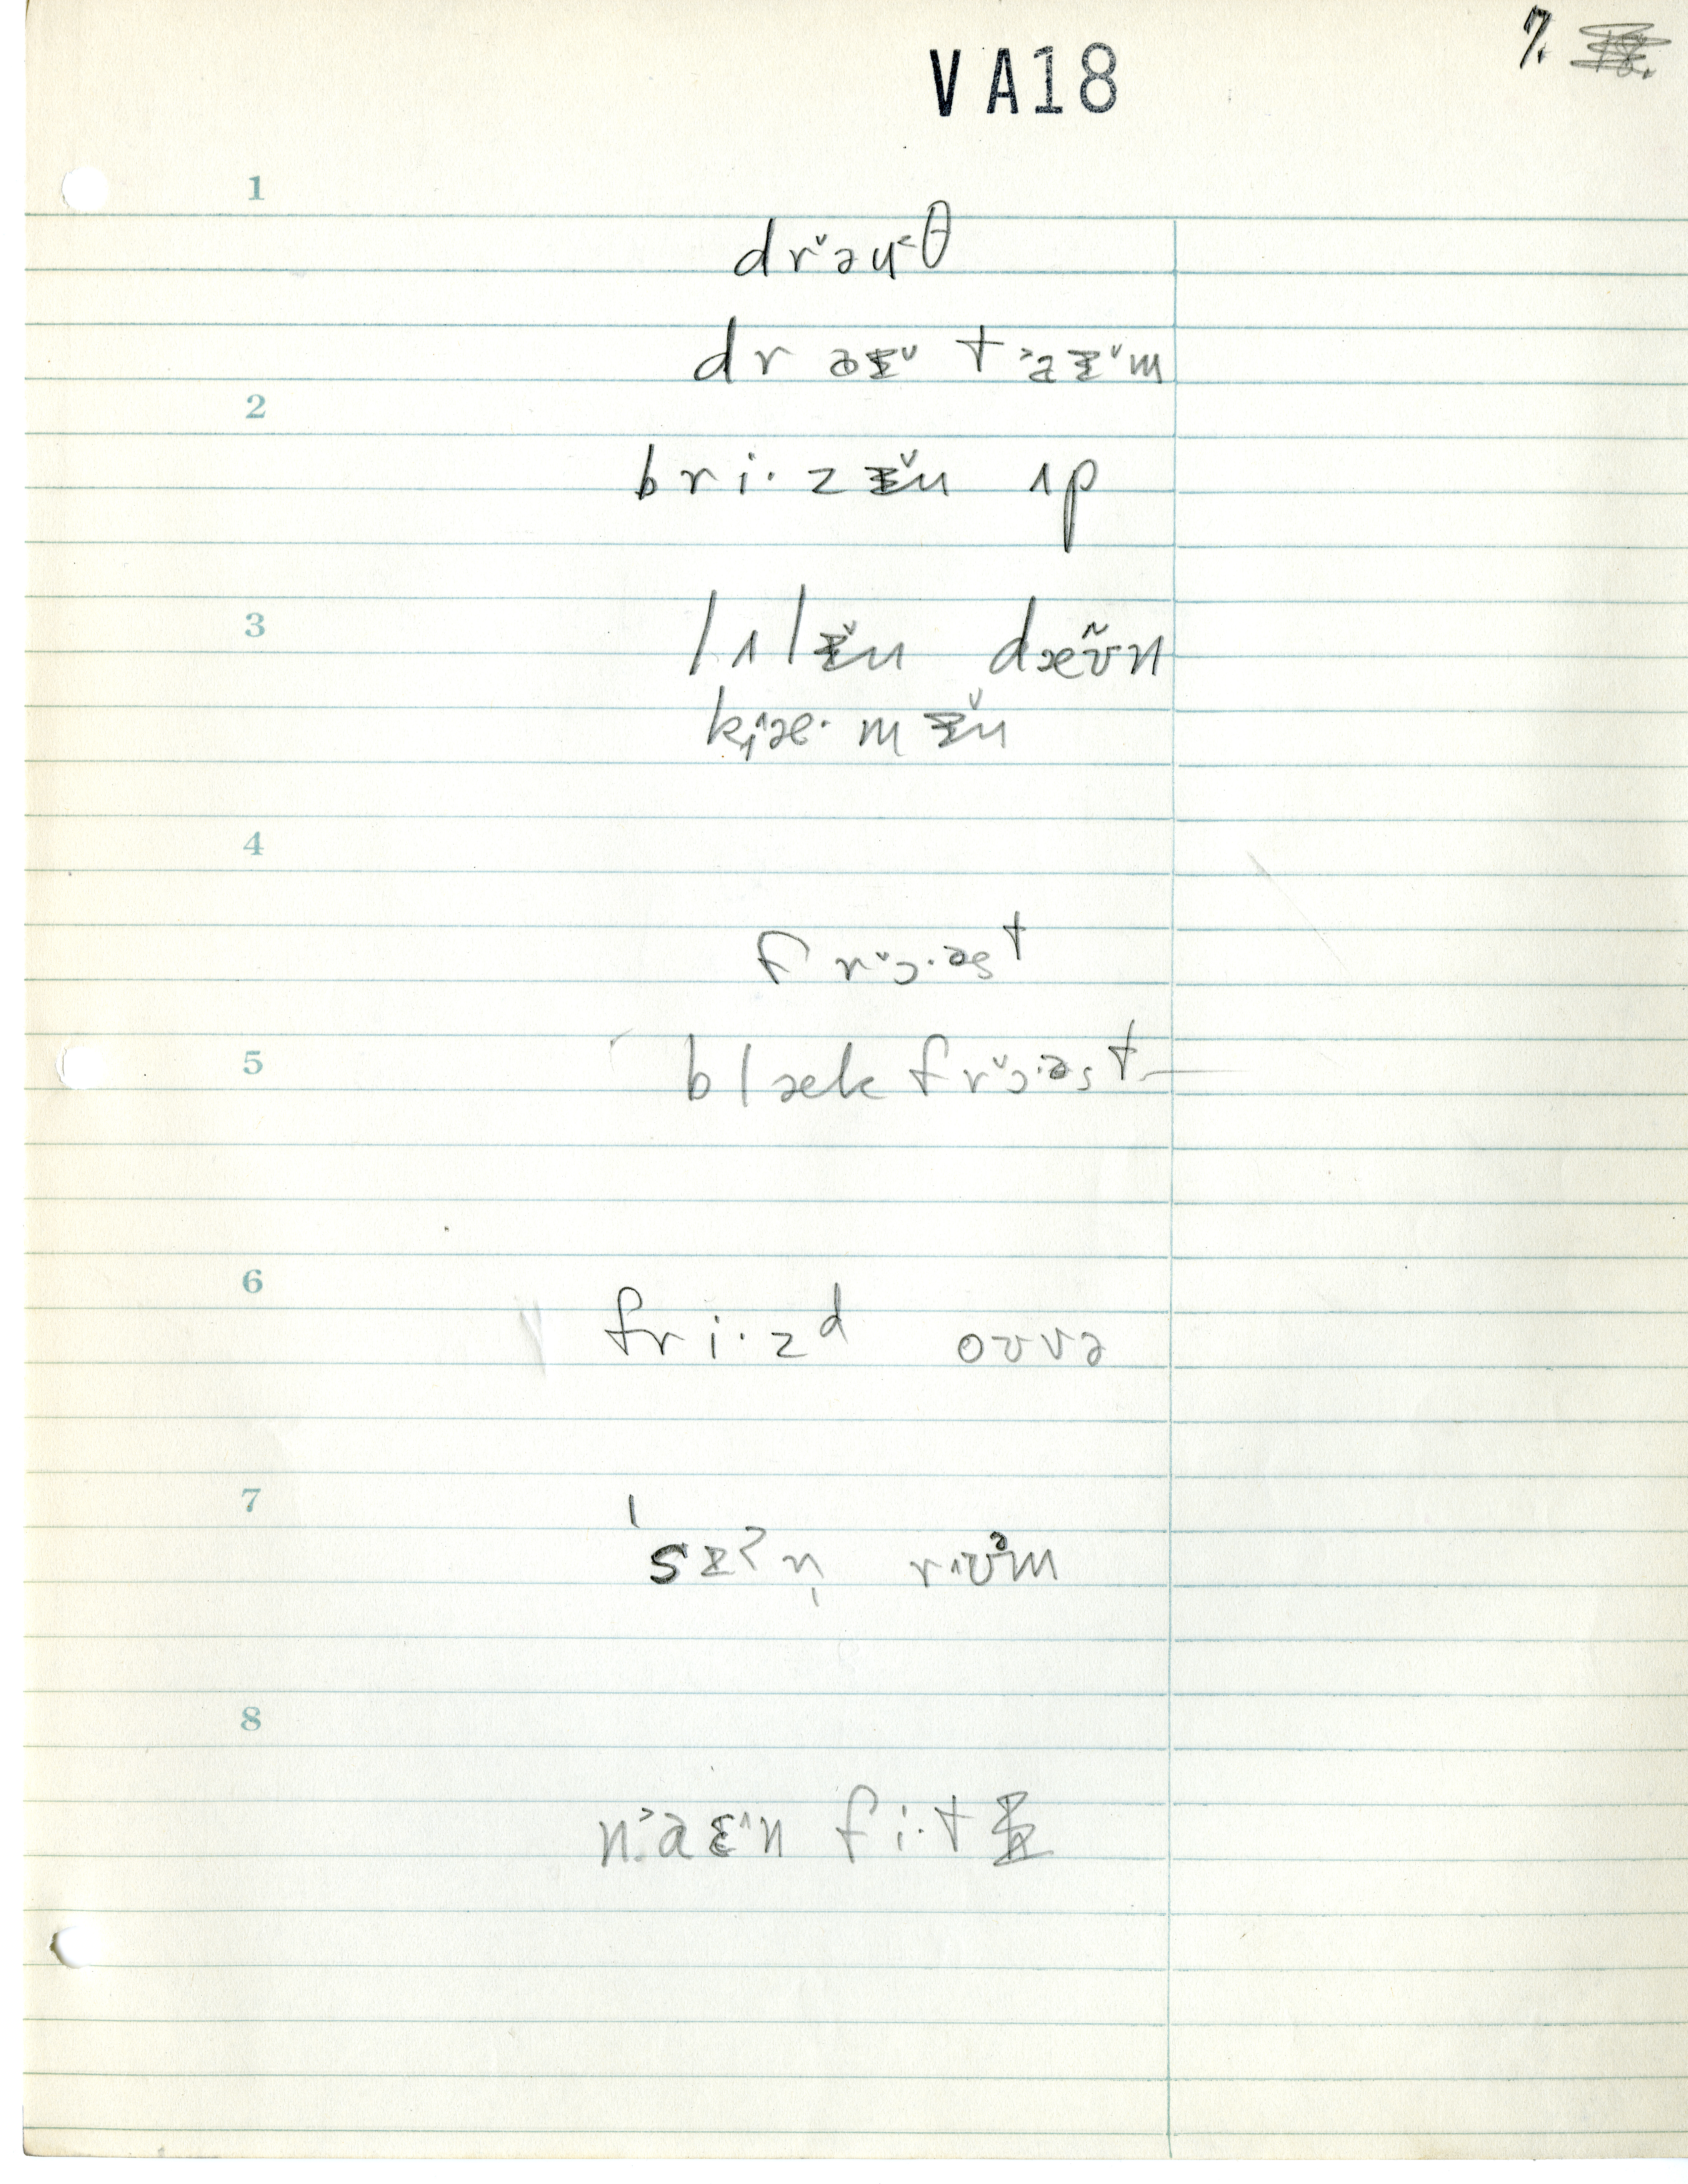 7.
VA18
1
drˇəʉ˂θ
dr aɪˇ t˃aɪˇm
2
bri·zɪ̌n ʌp
3
lʌlɪ̌n dæʊ̃n
k̟ˆæ·mɪ̌n
4
frˇɔ·əst
5
blæk frˇɔ·əst
6
fri·zd oʊvə
7
ˈsɪʔn̩ rʊm
8
n˃aɛˆn fi·t